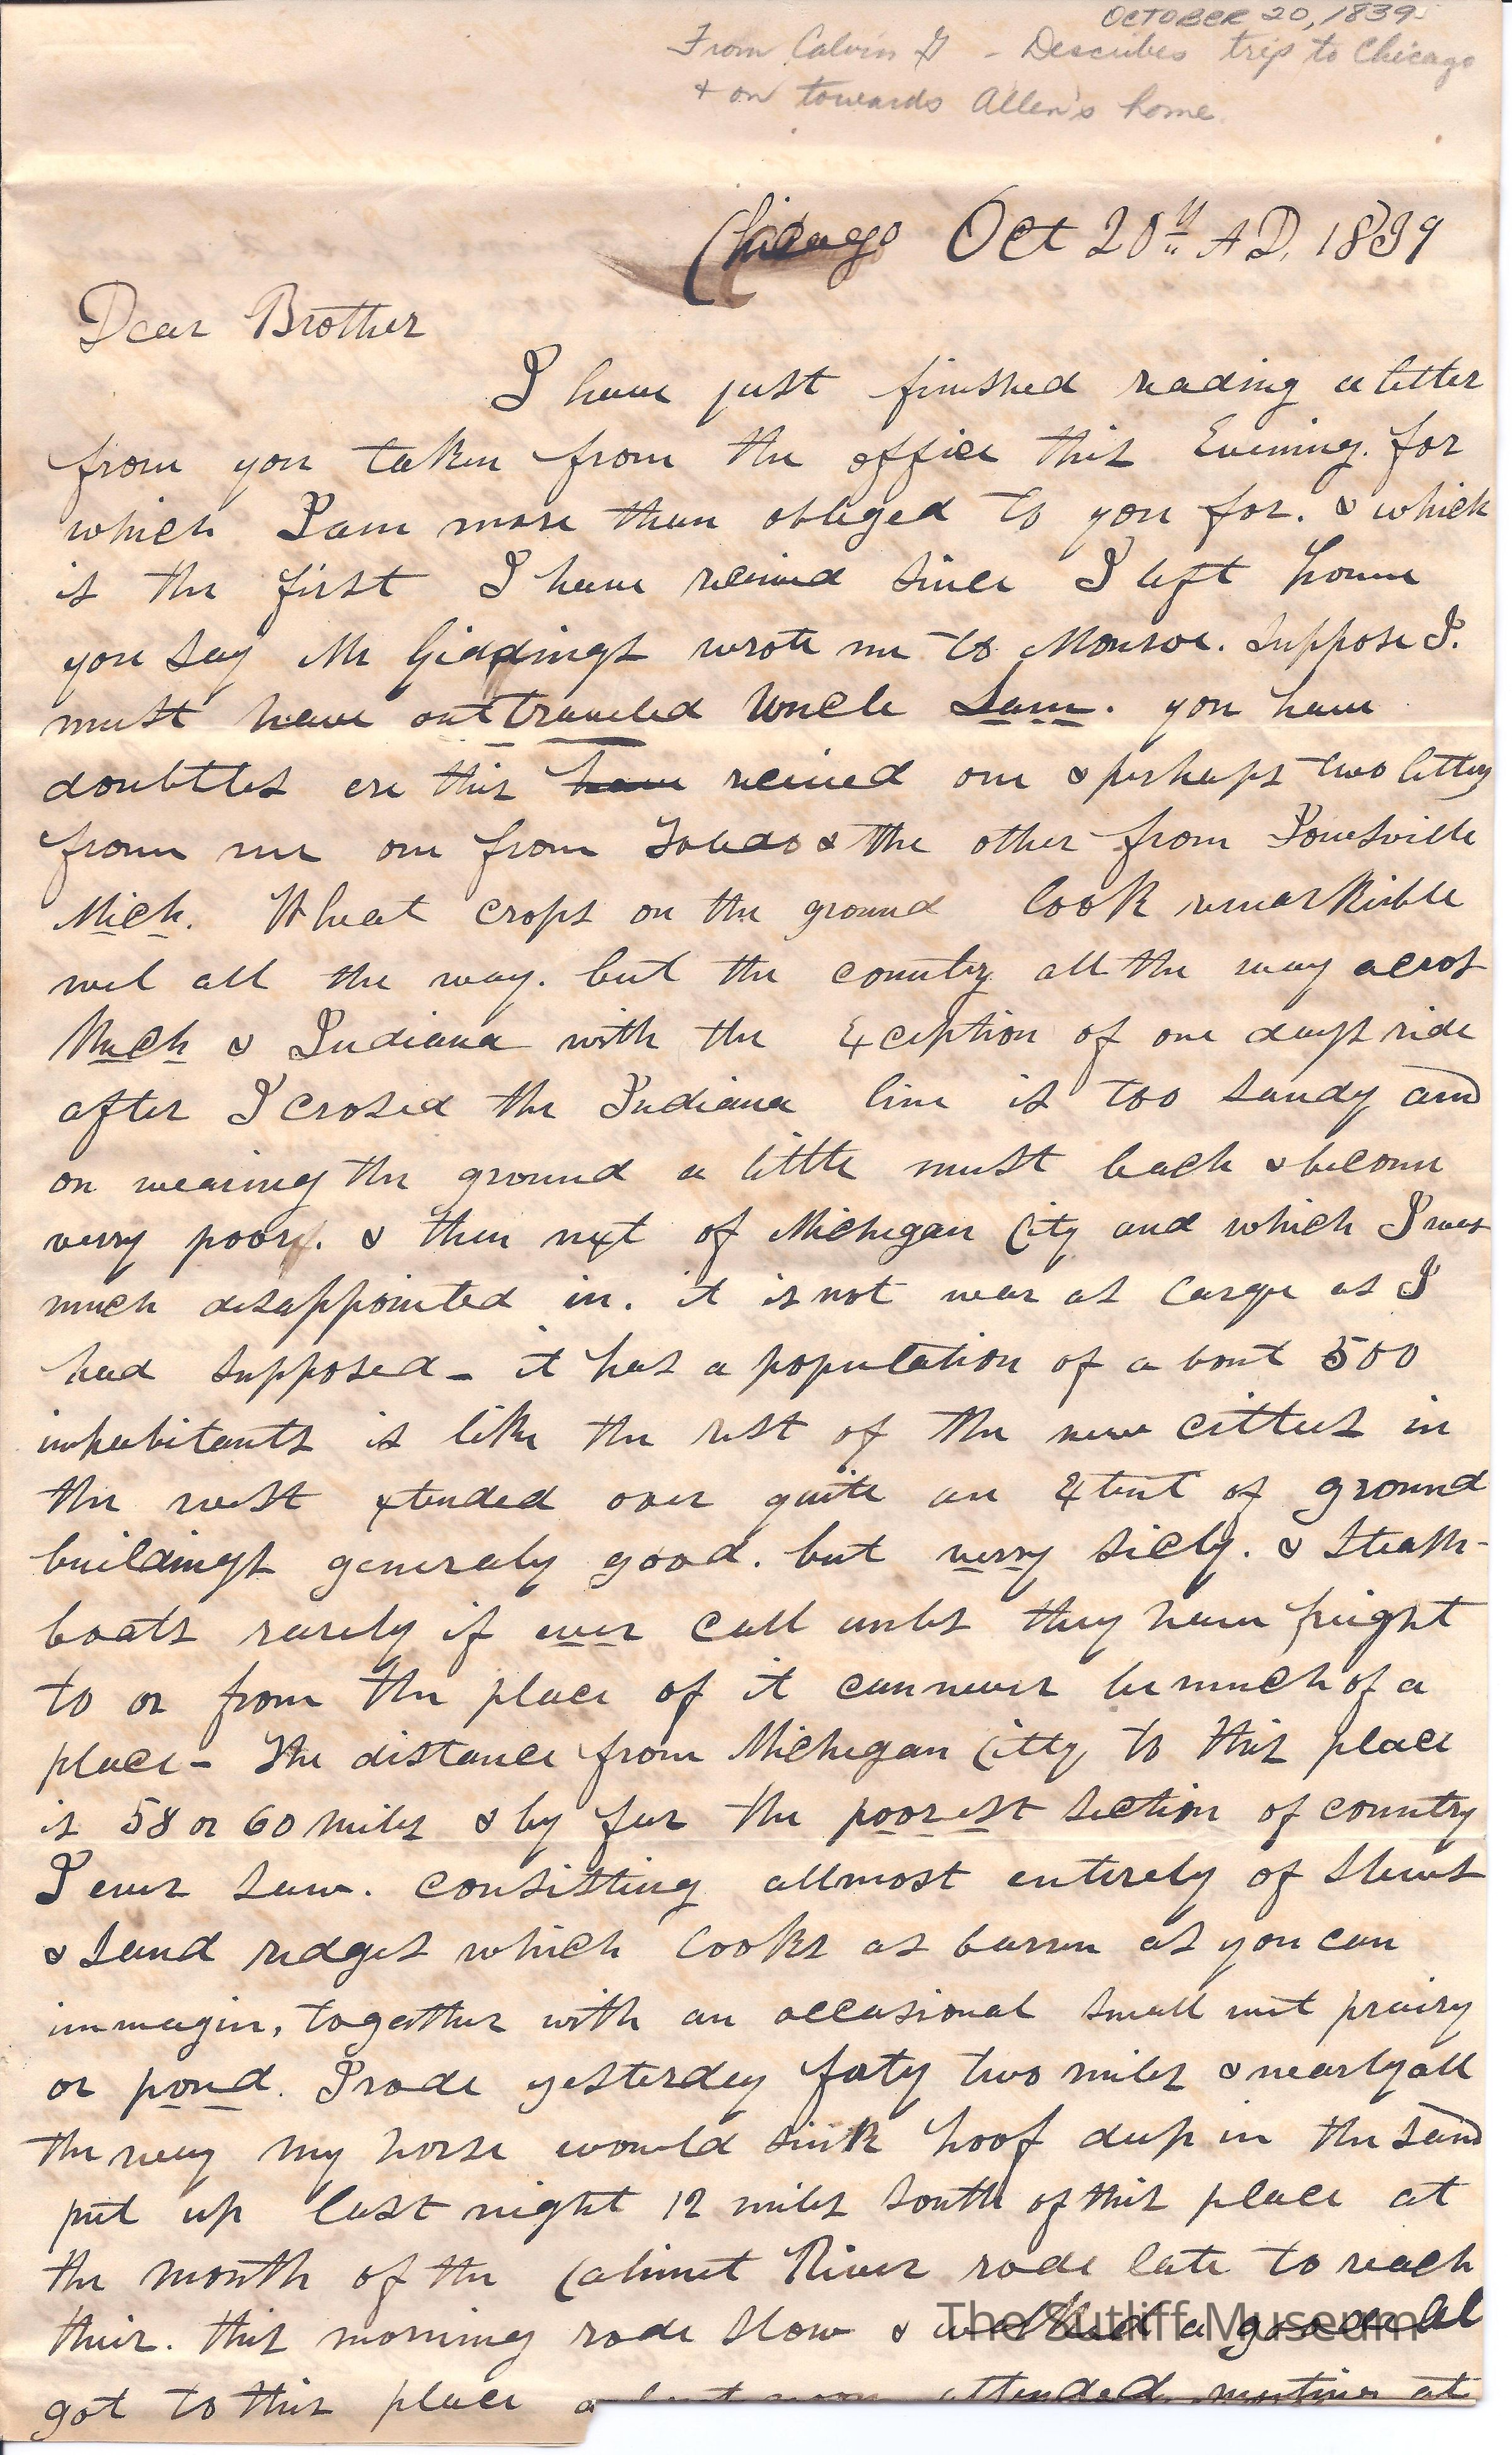 OCTOBER 20, 1839
From Calvin G - Describes trip to Chicago
+ on towards Allen's home.
Chicago Oct 20th AD, 1839
Dear Brother
I have just finished reading a letter
from you taken from the office this Evening. for
which I am more than obliged to you for. & which
is the first I have recived since I left home
you say Mr Giddings wrote me to Monroe. Suppose I.
must have outtraveled Uncle Sam. you have
doubtles ere this have recived one & perhaps two letters
from me one from Toledo & the other from Jonesville
Mich. Wheat crops on the ground look remarkible
wel all the way. but the country all the way acros
Mich & Indiana with the Exception of one days ride
after I crosed the Indiana line is too sandy and
on wearing the ground a little must leach & become
verry poor. & then next of Michegan City and which I was
much disappointed in. it is not near as large as I
had supposed - it has a population of a bout 500
inhabitants is like the rest of the new citties in
the west xtended over quite an Extent of ground
buildings generaly good. but verry sicly. & Steam-
boats rarely if ever call unles they have freight
to or from the place of it can never be much of a
place - The distance from Michegan Citty to this place
is 58 or 60 miles & by far the poorest section of country
I ever saw. consisting allmost entirely of Slews
& Sand ridges which looks as barren as you can
immagin, together with an occasional small wet prairy
or pond. I rode yesterday foty two miles & nearly all
the way my horse would sink hoof deep in the sand
put up last night 12 miles south of this place at
the mouth of the Calimet River rode late to reach
thir. this morning rode slow & walked a good eal
The Sutliff Museum
got to this place a bout noon attended meeting at